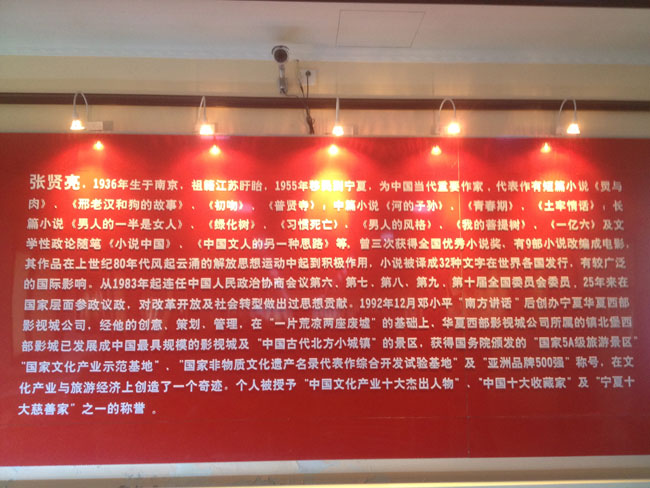 张贤亮，1936年生于南京，祖籍江苏盱眙，1955年移民到宁夏，为中国当代重要作家，代表作有短篇小说《灵与
肉》、《邢老汉和狗的故事》、《初吻》、《普贤寺》，中篇小说《河的子孙》、《青春期》、《土牢情话》，长
篇小说《男人的一半是女人》、《绿化树》、《习惯死亡》、《男人的风格》、《我的菩提树》、《一亿六》及文
学性政论随笔《小说中国》、《中国文人的另一种思路》等，曾三次获得全国优秀小说奖、有9部小说改编成电影，
其作品在上世纪80年代风起云涌的解放思想运动中起到积极作用，小说被译成32种文字在世界各国发行，有较广泛
的国际影响。从1983年起连任中国人民政治协商会议第六、第七、第八、第九、第十届全国委员会委员，25年来在
国家层面参政议政，对改革开放及社会转型做出过思想贡献，1992年12月邓小平“南方讲话”后创办宁夏华夏西部
影视城公司，经他的创意、策划、管理，在“一片荒凉两座废墟”的基础上，华夏西部影视城公司所属的镇北堡西
部影城已发展成中国最具规模的影视城及“中国古代北方小城镇”的景区，获得国务院颁发的“国家5A级旅游景区”
“国家文化产业示范基地”、“国家非物质文化遗产名录代表作综合开发试验基地”及“亚洲品牌500强”称号，在文
化产业与旅游经济上创造了一个奇迹，个人被授予“中国文化产业十大杰出人物”、“中国十大收藏家”及“宁夏十
大慈善家”之一的称誉。